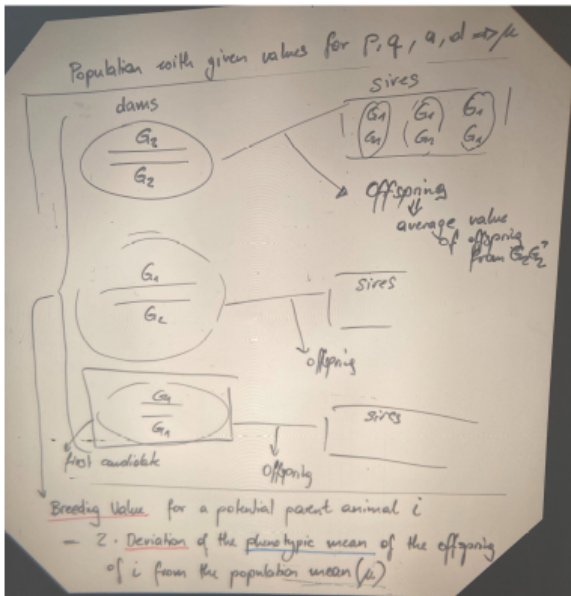 Population with given values for p, q, a, d ⇒ μ
dams
sires
G2
G2
G1 G1 G1
G1 G1 G1
Offspring
average value
of offspring
from G2G2
G1
G2
sires
offspring
G1
G1
sires
first candidate
offspring
Breeding Value for a potential parent animal i
= 2 · Deviation of the phenotypic mean of the offspring
of i from the population mean (μ)